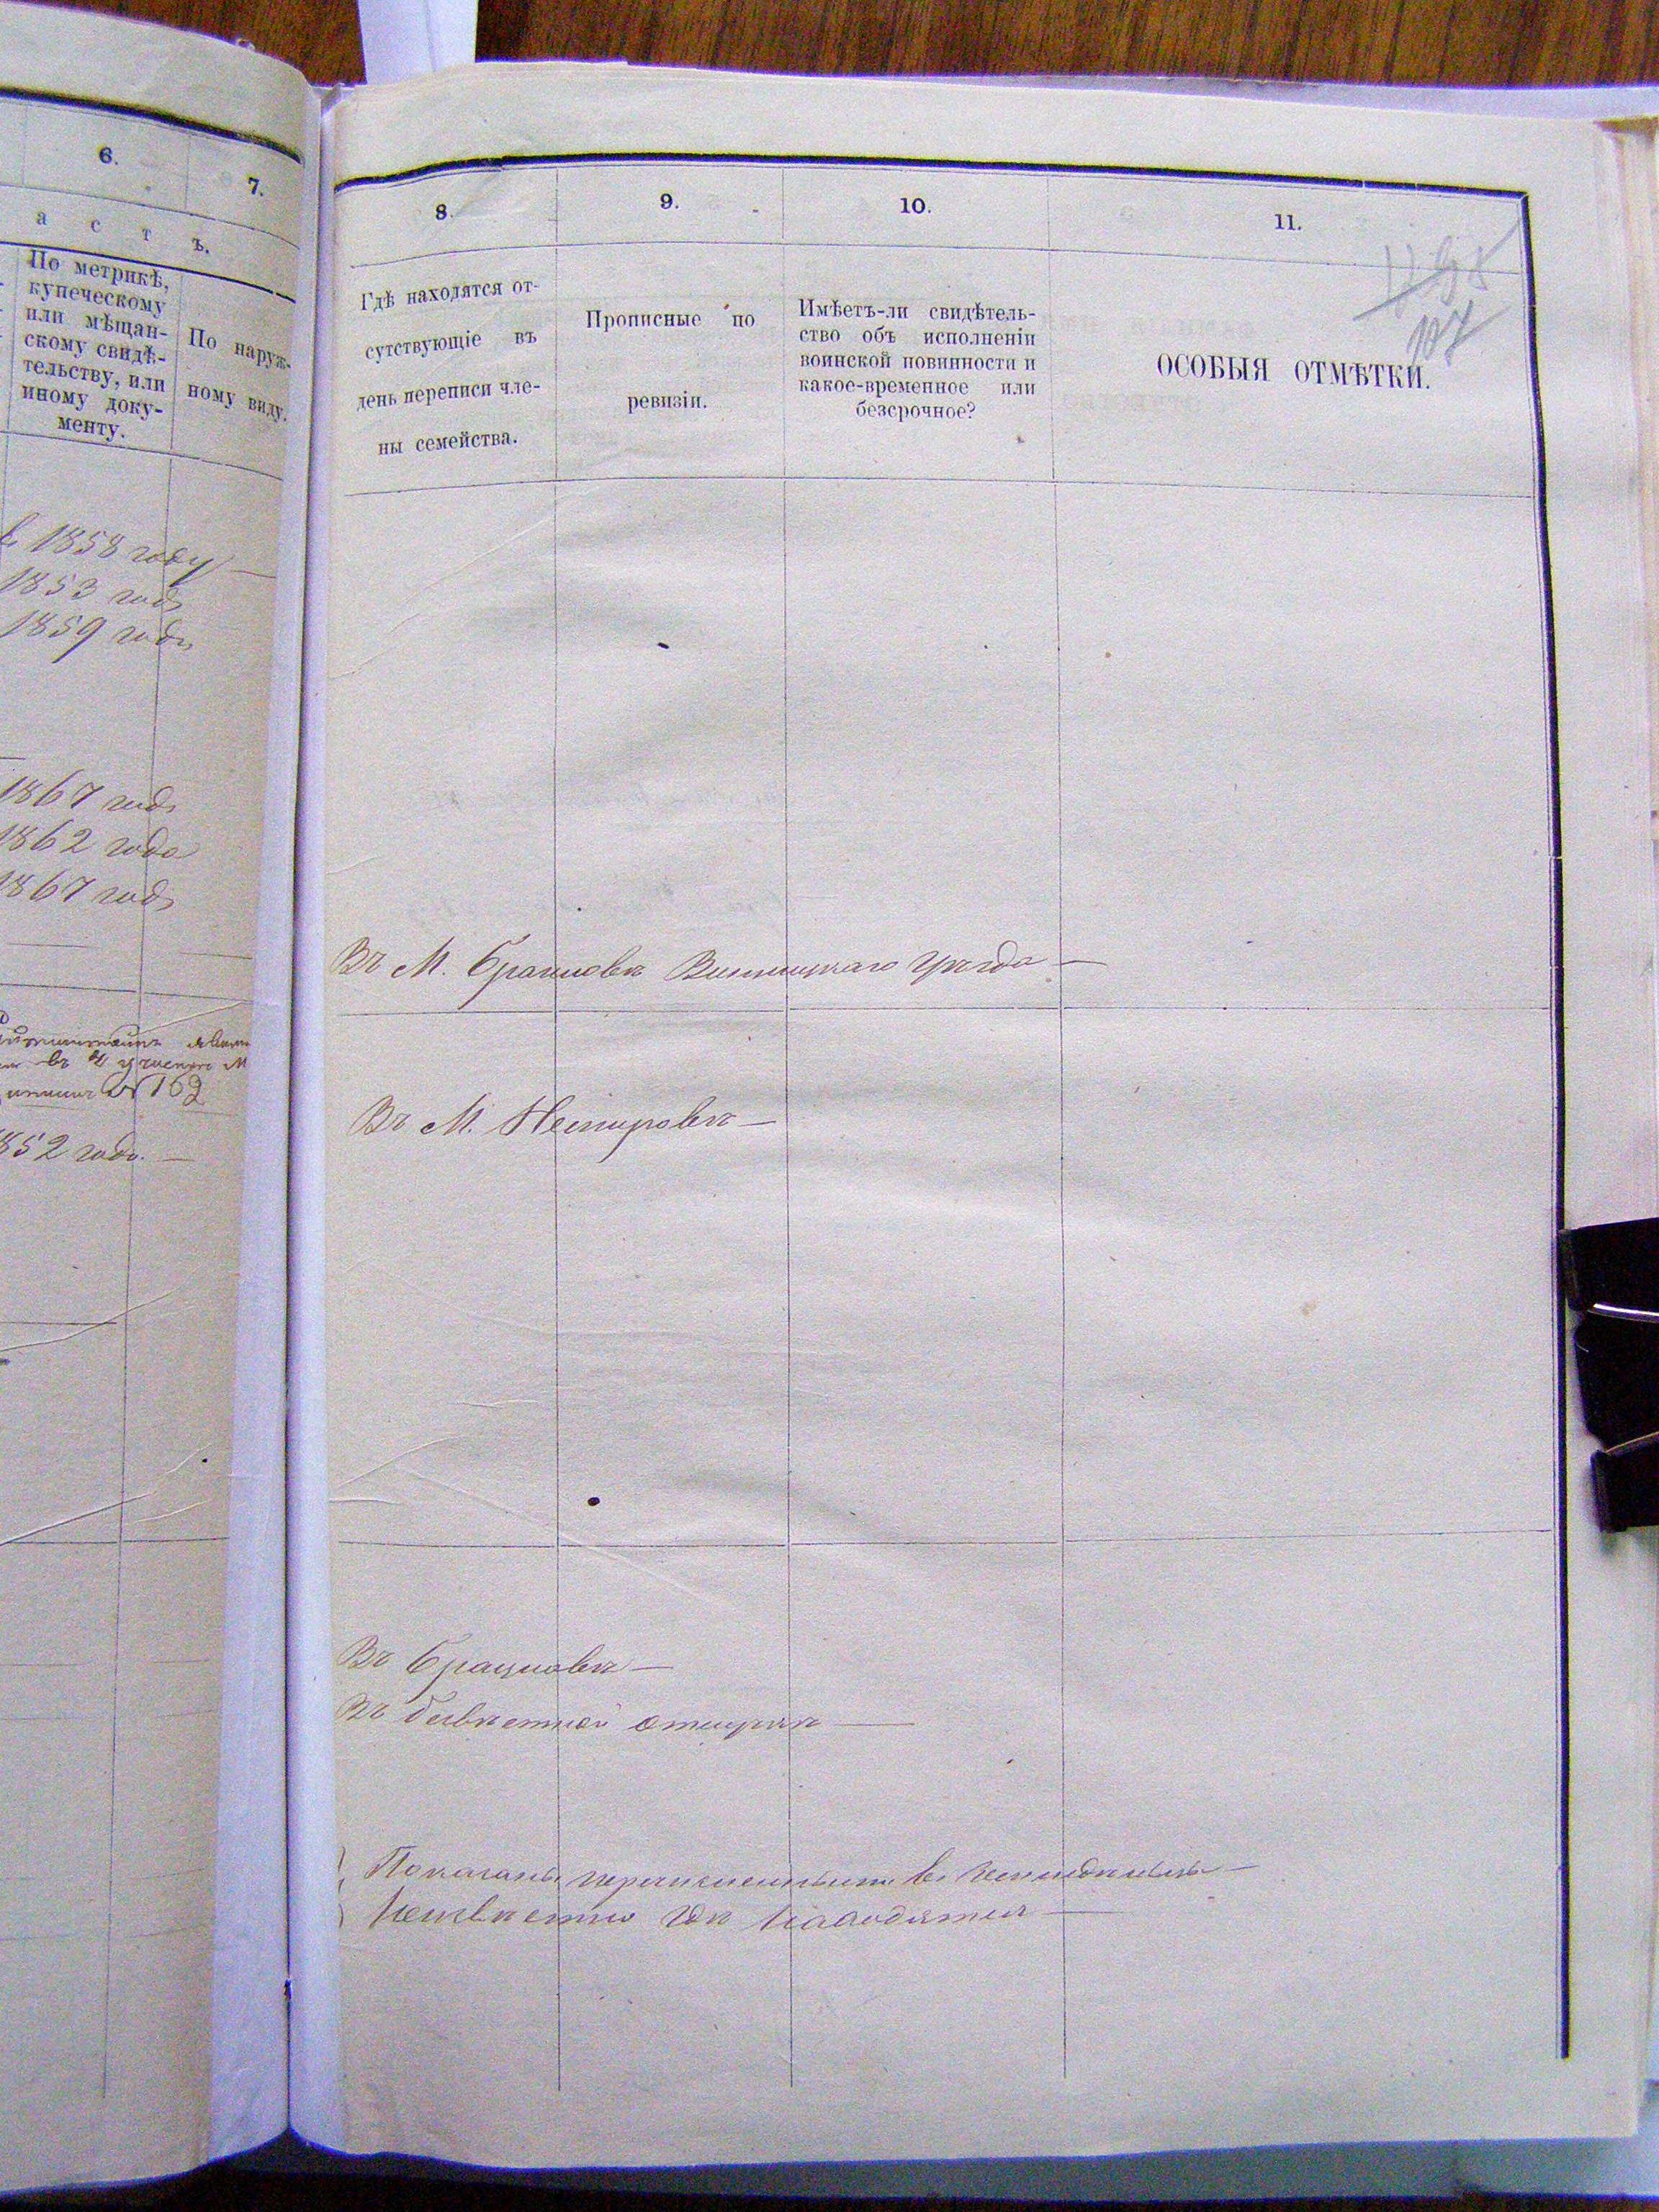 6.
7.
а с т ъ.
По метрикѣ,
купеческому
или мѣщан-
скому свидѣ-
тельству, или
иному доку-
менту.
По наруж-
ному виду.
1858 году
1853 года
1859 года
1867 года
1862 года
1867 года
№ 162
852 года.
8.
9.
10.
11.
Гдѣ находятся от-
сутствующіе въ
день переписи чле-
ны семейства.
Прописные по
ревизіи.
Имѣетъ-ли свидѣтель-
ство объ исполненіи
воинской повинности и
какое-временное или
безсрочное?
ОСОБЫЯ ОТМѢТКИ.
107
Въ М. Браиловѣ Винницкаго уѣзда
Въ М. Немировѣ
Въ Брацлавѣ
Въ безвѣстной отлучкѣ
Показаны перечисленными въ
Неизвѣстно гдѣ находятся